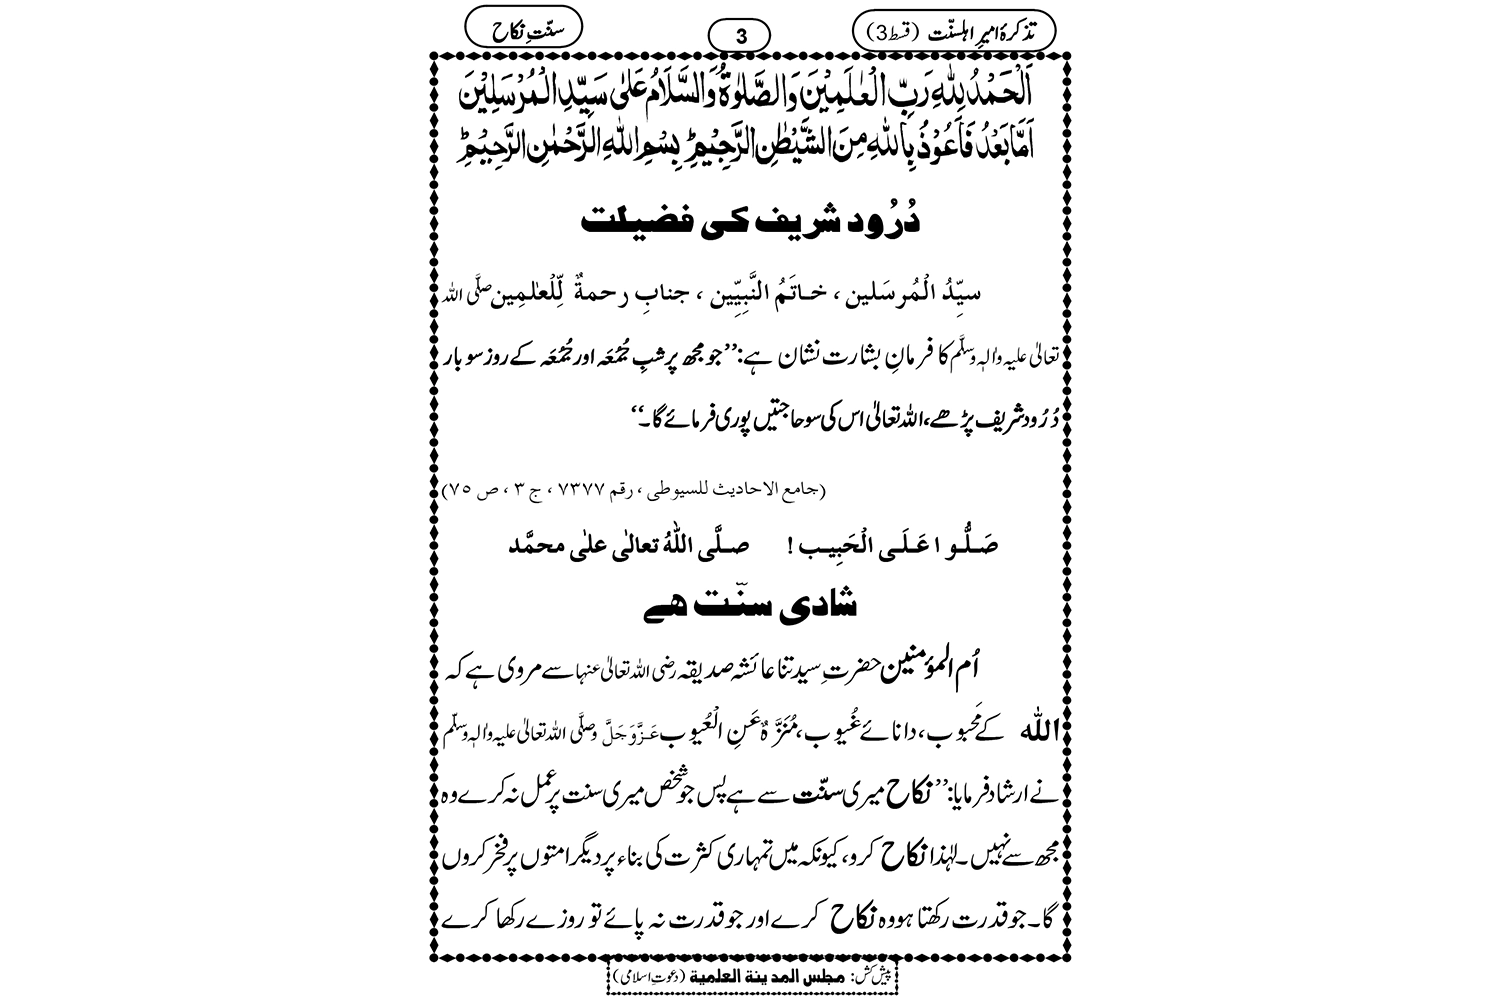 تذکرۂ امیرِ اہلسنّت (قسط3)
3
سنّتِ نکاح
اَلْحَمْدُ لِلّٰهِ رَبِّ الْعٰلَمِيْنَ وَالصَّلٰوةُ وَالسَّلَامُ عَلٰى سَيِّدِ الْمُرْسَلِيْنَ
اَمَّا بَعْدُ فَاَعُوْذُ بِاللّٰهِ مِنَ الشَّيْطٰنِ الرَّجِيْمِؕ بِسْمِ اللّٰهِ الرَّحْمٰنِ الرَّحِيْمِؕ
دُرُود شریف کی فضیلت
سیِّدُ الْمُرسَلین ، خاتَمُ النَّبِیِّین ، جنابِ رحمةٌ لِّلْعٰلمِین صلَّی اللہ
تعالیٰ علیہ واٰلہٖ وسلَّم کا فرمانِ بشارت نشان ہے:’’جو مجھ پر شبِ جُمُعَہ اور جُمُعَہ کے روز سو بار
دُرُود شریف پڑھے، اللہ تعالیٰ اس کی سو حاجتیں پوری فرمائے گا۔‘‘
(جامع الاحادیث للسیوطی ، رقم ۷۳۷۷ ، ج ۳ ، ص ۷۵)
صَلُّوا عَلَی الْحَبِیب ! صلَّی اللّٰهُ تعالٰی علٰی محمَّد
شادی سنّت ھے
اُم المؤمنین حضرتِ سیدتنا عائشہ صدیقہ رضی اللہ تعالیٰ عنہا سے مروی ہے کہ
اللّٰه کے مَحبوب، دانائے غُیوب، مُنَزَّہٌ عَنِ الْعُیوب عَزَّوَجَلَّ وصلَّی اللہ تعالیٰ علیہ واٰلہٖ وسلَّم
نے ارشاد فرمایا:’’نکاح میری سنّت سے ہے پس جو شخص میری سنت پر عمل نہ کرے وہ
مجھ سے نہیں۔ لہٰذا نکاح کرو، کیونکہ میں تمہاری کثرت کی بناء پر دیگر امتوں پر فخر کروں
گا۔ جو قدرت رکھتا ہو وہ نکاح کرے اور جو قدرت نہ پائے تو روزے رکھا کرے
پیش کش: مجلس المدینة العلمیة (دعوتِ اسلامی)